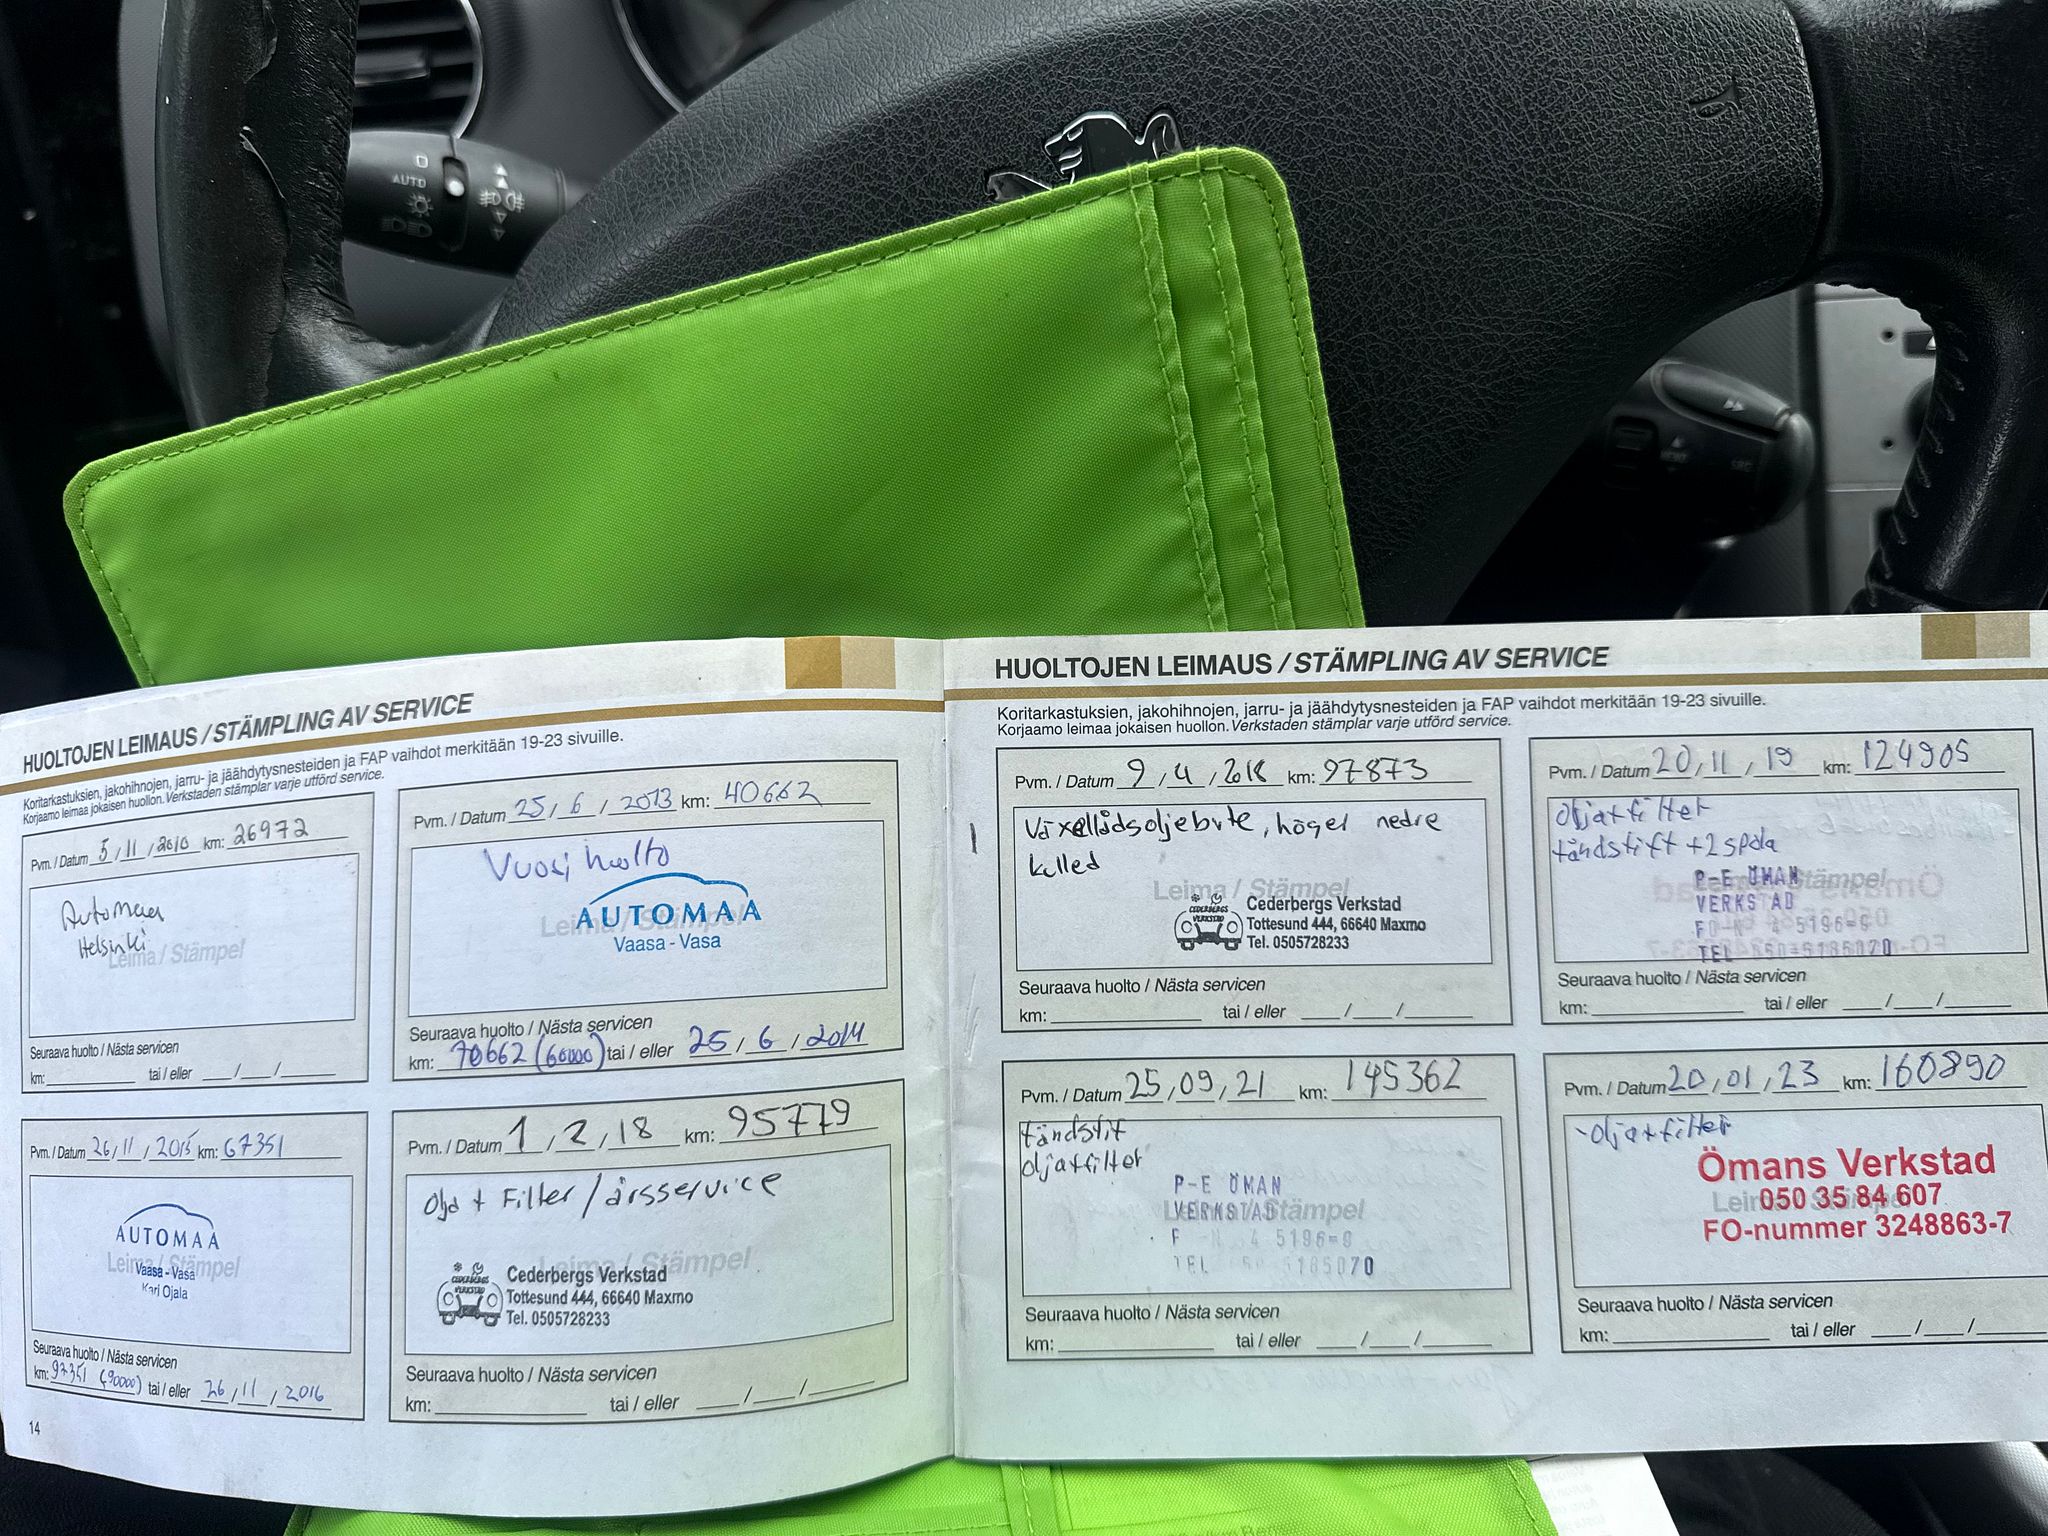 AUTO
SRC
HUOLTOJEN LEIMAUS / STÄMPLING AV SERVICE
Koritarkastuksien, jakohihnojen, jarru- ja jäähdytysnesteiden ja FAP vaihdot merkitään 19-23 sivuille.
Korjaamo leimaa jokaisen huollon. Verkstaden stämplar varje utförd service.
Pvm. / Datum 5 / 11 / 2010 km: 26972
Automaa
Helsinki
Leima / Stämpel
Seuraava huolto / Nästa servicen
km: tai / eller / /
Pvm. / Datum 25 / 6 / 2013 km: 40662
Vuosi huolto
Leima / Stämpel
AUTOMAA
Vaasa - Vasa
Seuraava huolto / Nästa servicen
km: 70662 (60000) tai / eller 25 / 6 / 2014
Pvm. / Datum 26 / 11 / 2015 km: 67351
AUTOMAA
Leima / Stämpel
Vaasa - Vasa
Kari Ojala
Seuraava huolto / Nästa servicen
km: 97351 (90000) tai / eller 26 / 11 / 2016
Pvm. / Datum 1 / 2 / 18 km: 95779
Olja + Filter / årsservice
Leima / Stämpel
CEDERBERGS VERKSTAD
Cederbergs Verkstad
Tottesund 444, 66640 Maxmo
Tel. 0505728233
Seuraava huolto / Nästa servicen
km: tai / eller / /
14
HUOLTOJEN LEIMAUS / STÄMPLING AV SERVICE
Koritarkastuksien, jakohihnojen, jarru- ja jäähdytysnesteiden ja FAP vaihdot merkitään 19-23 sivuille.
Korjaamo leimaa jokaisen huollon. Verkstaden stämplar varje utförd service.
Pvm. / Datum 9 / 4 / 2018 km: 97873
Växellådsoljebyte, höger nedre
kulled
Leima / Stämpel
CEDERBERGS VERKSTAD
Cederbergs Verkstad
Tottesund 444, 66640 Maxmo
Tel. 0505728233
Seuraava huolto / Nästa servicen
km: tai / eller / /
Pvm. / Datum 20 / 11 / 19 km: 124905
olja+filter
tändstift +2 spola
Stämpel
P-E ÖMAN
VERKSTAD
TEL
Seuraava huolto / Nästa servicen
km: tai / eller / /
Pvm. / Datum 25 / 09 / 21 km: 145362
tändstift
olja+filter
Leima / Stämpel
P-E ÖMAN
VERKSTAD
TEL
Seuraava huolto / Nästa servicen
km: tai / eller / /
Pvm. / Datum 20 / 01 / 23 km: 160890
-olja+filter
Leima / Stämpel
Ömans Verkstad
050 35 84 607
FO-nummer 3248863-7
Seuraava huolto / Nästa servicen
km: tai / eller / /